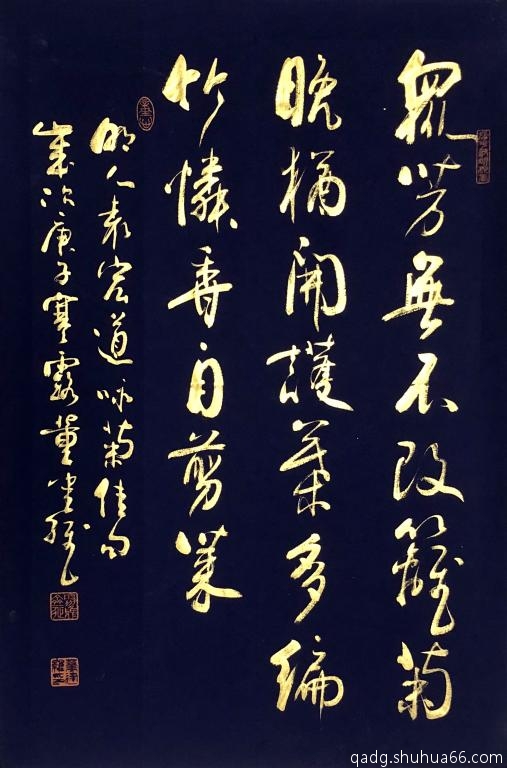 眾芳無不改籬菊
晚猶開護葉多編
竹憐香自剪萊
明人袁宏道咏菊佳句
歲次庚子寒露董
qadg.shuhua66.com